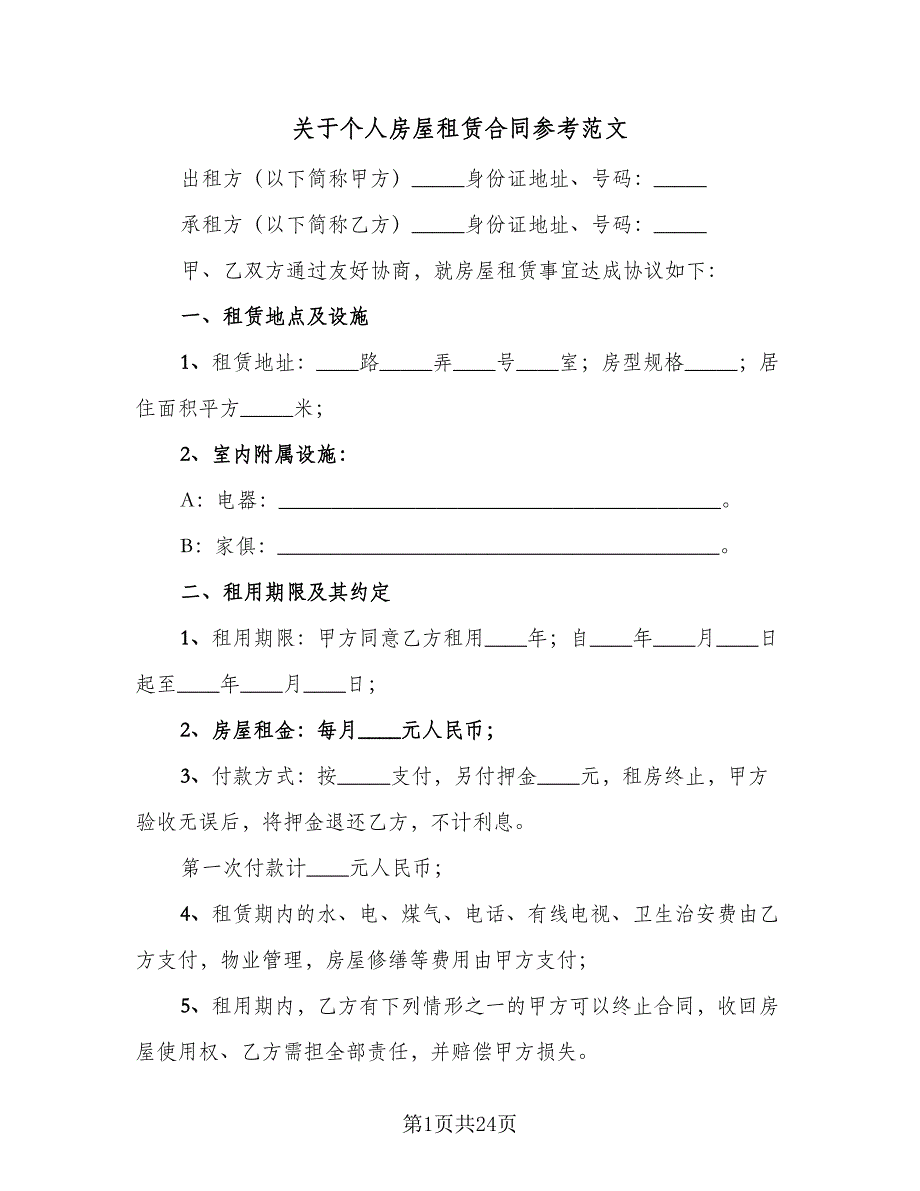 关于个人房屋租赁合同参考范文
出租方（以下简称甲方）_____身份证地址、号码：_____
承租方（以下简称乙方）_____身份证地址、号码：_____
甲、乙双方通过友好协商，就房屋租赁事宜达成协议如下：
一、租赁地点及设施
1、租赁地址：____路_____弄____号____室；房型规格_____；居
住面积平方_____米；
2、室内附属设施：
A：电器：__________________________________________。
B：家俱：__________________________________________。
二、租用期限及其约定
1、租用期限：甲方同意乙方租用____年；自____年____月____日
起至____年____月____日；
2、房屋租金：每月____元人民币；
3、付款方式：按_____支付，另付押金____元，租房终止，甲方
验收无误后，将押金退还乙方，不计利息。
第一次付款计____元人民币；
4、租赁期内的水、电、煤气、电话、有线电视、卫生治安费由乙
方支付，物业管理，房屋修缮等费用由甲方支付；
5、租用期内，乙方有下列情形之一的甲方可以终止合同，收回房
屋使用权、乙方需担全部责任，并赔偿甲方损失。
第1页共24页